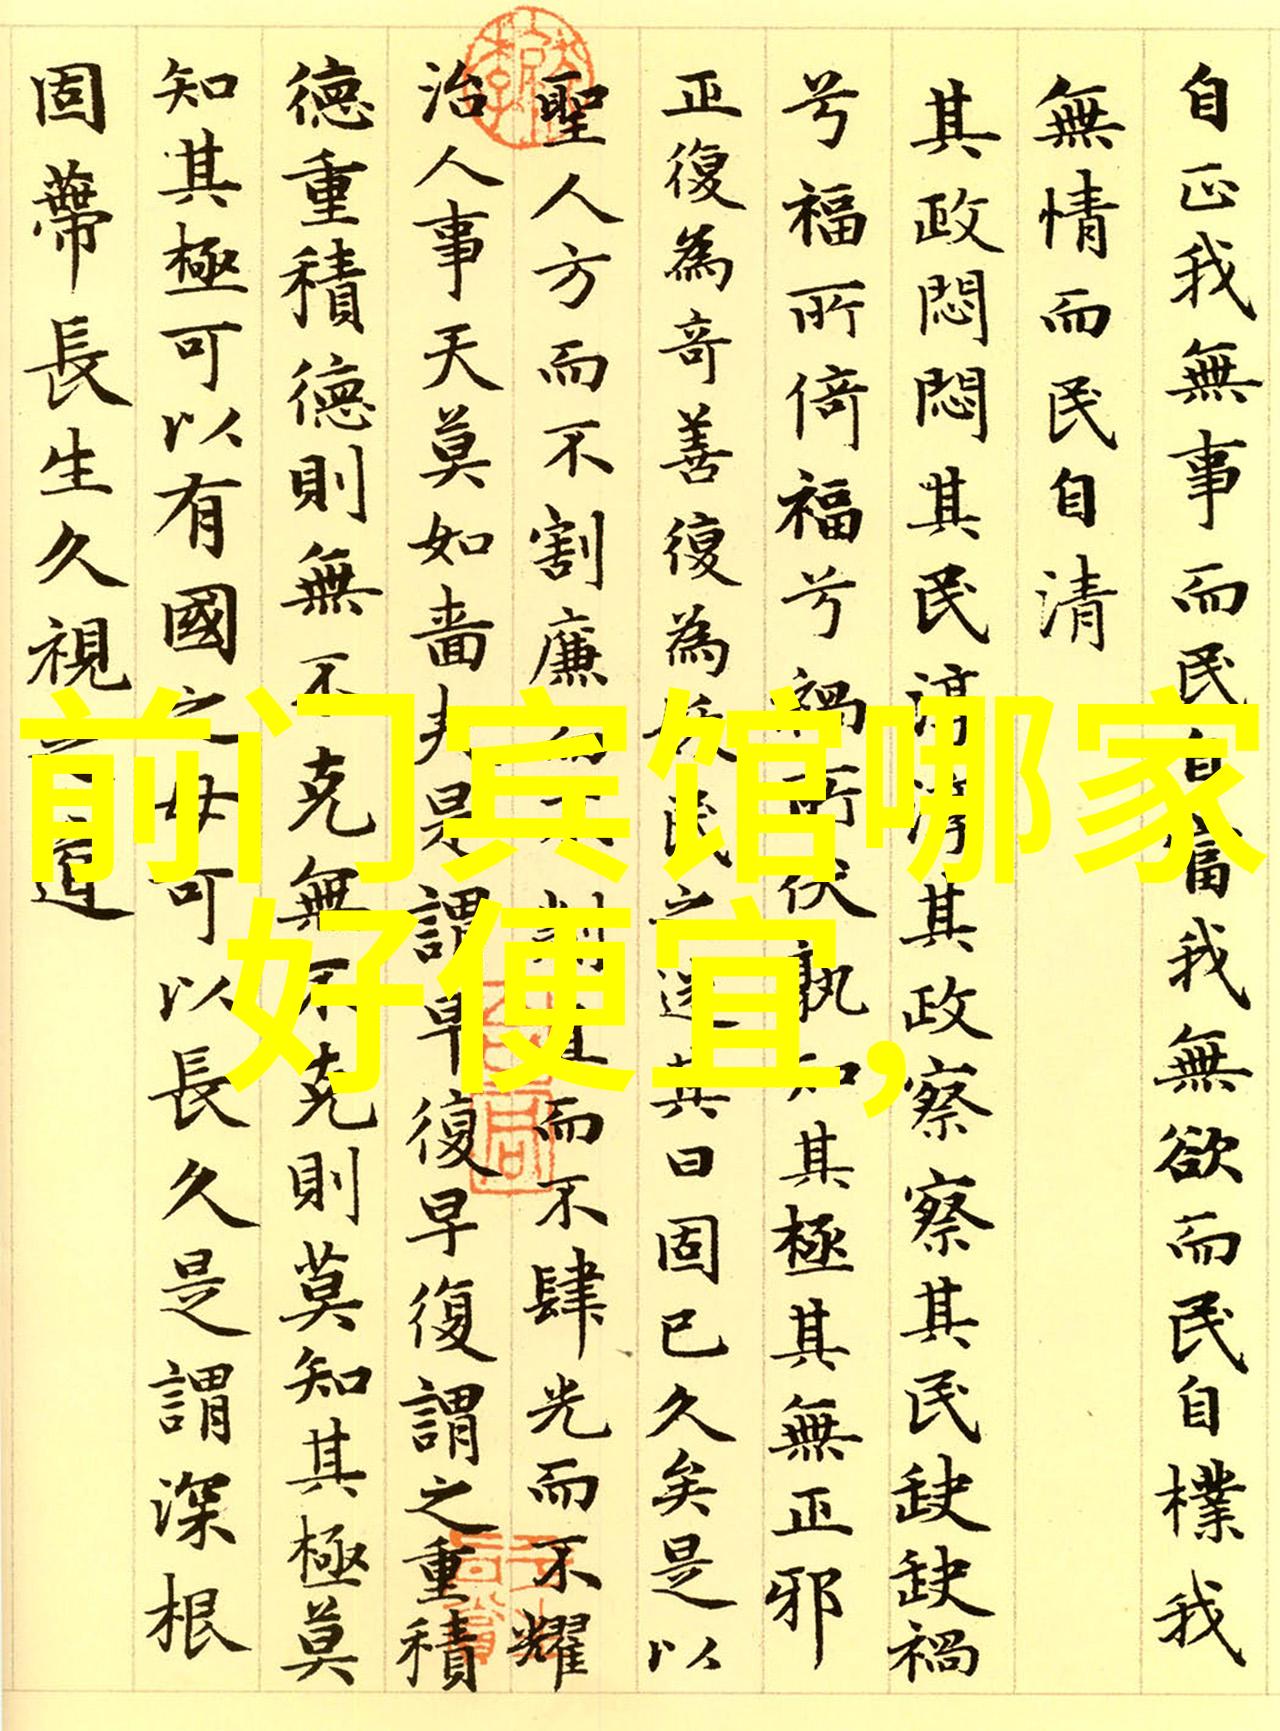 自正我無事而民自富我無欲而民自樸我
無情而民自清
其政悶悶其民淳淳其政察察其民缺缺禍
兮福所倚福兮禍所伏孰知其極其無正邪
正復為奇善復為妖民之迷其日固已久矣是以
聖人方而不割廉而不劌直而不肆光而不耀
治人事天莫如嗇夫是謂早復早復謂之重積
德重積德則無不克無不克則莫知其極莫
知其極可以有國有國之母可以長久是謂深根
固蒂長生久視之道
前门宾馆哪家
好便宜,